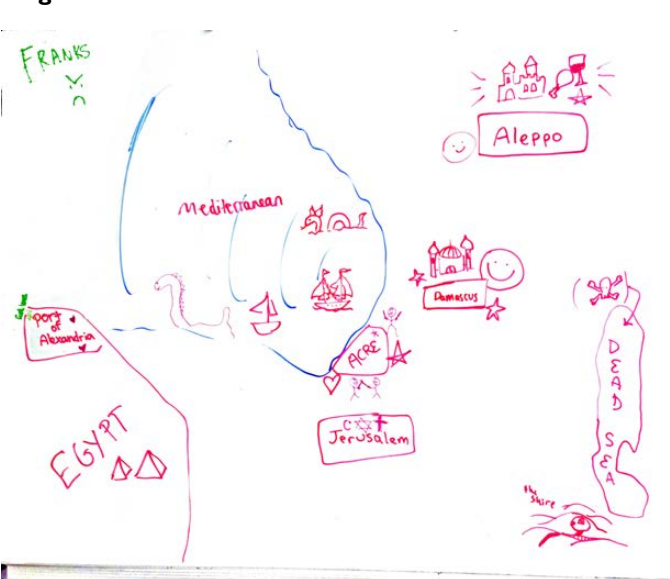 FRANKS
Aleppo
Mediterranean
Damascus
port
of
Alexandria
ACRE
DEAD SEA
EGYPT
Jerusalem
the
Shire